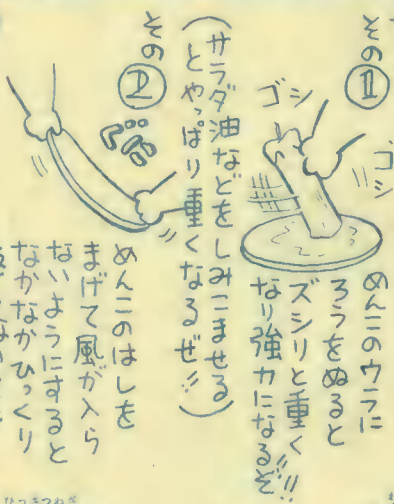 その①
ゴシ
ゴシ
めんこのウラに
ろうをぬると
ズシリと重く
なり強力になるぞ!!
(サラダ油などをしみこませる
とやっぱり重くなるぜ!!)
その②
ぐぐ
めんこのはしを
まげて風が入ら
ないようにすると
なかなかひっくり